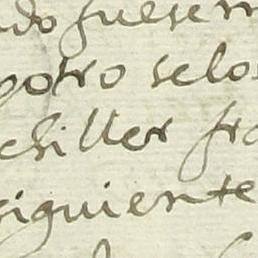 do fuesem
potro selos
esiller fra
siguiente